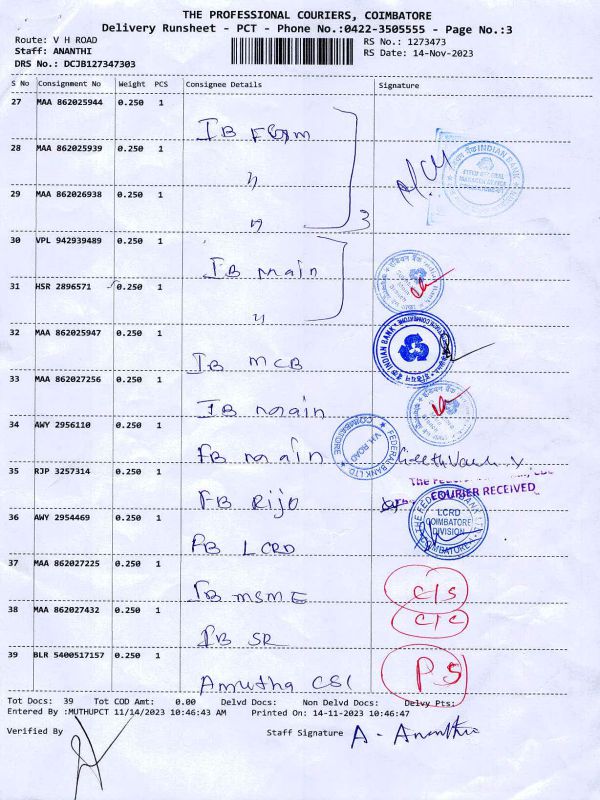 THE PROFESSIONAL COURIERS, COIMBATORE
Delivery Runsheet - PCT - Phone No.:0422-3505555 - Page No.:3
Route: V H ROAD
RS No.: 1273473
Staff: ANANTHI
RS Date: 14-Nov-2023
DRS No.: DCJB127347303
S No Consignment No Weight PCS Consignee Details Signature
27 MAA 862025944 0.250 1 IB
28 MAA 862025939 0.250 1 "
29 MAA 862026938 0.250 1 " 3
30 VPL 942939489 0.250 1 IB main
31 HSR 2896571 0.250 1 "
32 MAA 862025947 0.250 1 IB MCB
INDIAN BANK
33 MAA 862027256 0.250 1 IB main
34 AWY 2956110 0.250 1 FB main
FEDERAL BANK LTD VH ROAD COIMBATORE
35 RJP 3257314 0.250 1 FB RIJO
COURIER RECEIVED
36 AWY 2954469 0.250 1 FB LCRD
LCRD
COIMBATORE
DIVISION
37 MAA 862027225 0.250 1 FB MSME C/S
38 MAA 862027432 0.250 1 FB SR C/C
39 BLR 5400517157 0.250 1 Amutha CSC PS
Tot Docs: 39 Tot COD Amt: 0.00 Delvd Docs: Non Delvd Docs: Delvy Pts:
Entered By :MUTHUPCT 11/14/2023 10:46:43 AM Printed On: 14-11-2023 10:46:47
Verified By
Staff Signature A - Ananthi